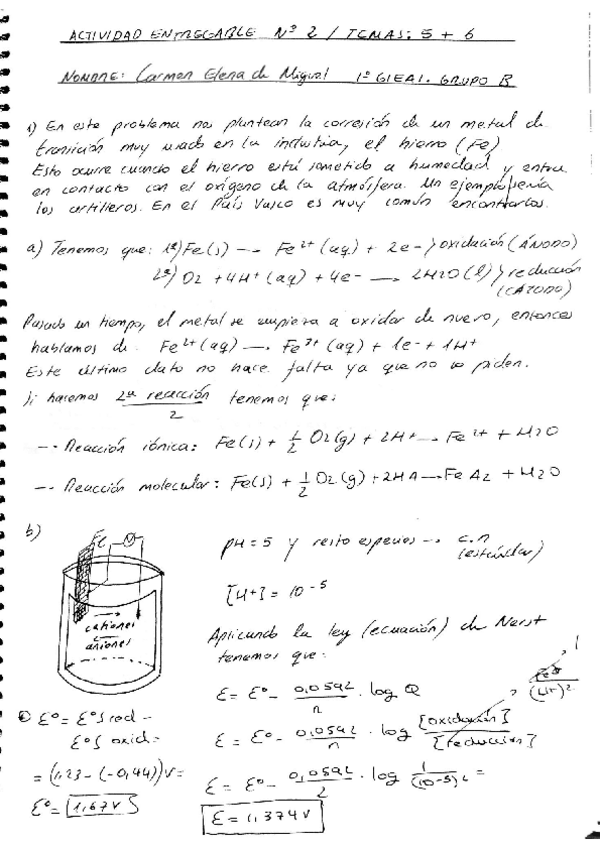 ACTIVIDAD ENTREGABLE Nº 2 / TEMAS: 5 + 6
NOMBRE: Carmen Elena de Miguel 1º GIEAI. GRUPO B
1) En este problema nos plantean la corrosión de un metal de
transición muy usado en la industria, el hierro (Fe)
Esto ocurre cuando el hierro está sometido a humedad y entra
en contacto con el oxígeno de la atmósfera. Un ejemplo sería
los astilleros. En el País Vasco es muy común encontrarlos.
a) Tenemos que: 1ª) Fe(s) → Fe²⁺(aq) + 2e- } oxidación (ÁNODO)
2ª) O2 + 4H⁺(aq) + 4e- → 2H2O(l) } reducción
(CÁTODO)
Pasado un tiempo, el metal se empieza a oxidar de nuevo, entonces
hablamos de Fe²⁺(aq) → Fe³⁺(aq) + 1e- + 1H⁺
Este último dato no hace falta ya que no lo piden.
Si hacemos 2ª reacción / 2 tenemos que:
→ Reacción iónica: Fe(s) + 1/2 O2(g) + 2H+ → Fe²⁺ + H2O
→ Reacción molecular: Fe(s) + 1/2 O2(g) + 2HA → FeA2 + H2O
b)
Fe
V
cationes
aniones
pH = 5 y resto especies → c.n
(estándar)
[H+] = 10⁻⁵
Aplicando la ley (ecuación) de Nerst
tenemos que:
ε = ε° - 0,0592/n · log Q
1
(H+)²
ε = ε° - 0,0592/n · log [oxidación]/[reducción]
ε = ε° - 0,0592/2 · log 1/(10⁻⁵)² =
ε = 1,374 V
ε° = ε°{ red -
ε°{ oxid =
= (1,23 - (-0,44)) V =
ε° = 1,67 V